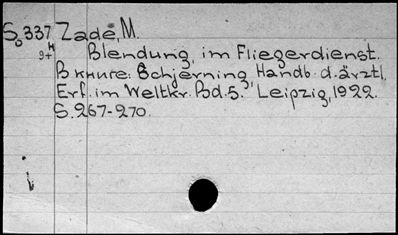 S₀337 Zade, M.
9H Blendung im Fliegerdienst.
В книге: Schjerning Handb. d. ärztl.
Erf. im Weltkr. Bd. 5. Leipzig, 1922.
S. 267-270.